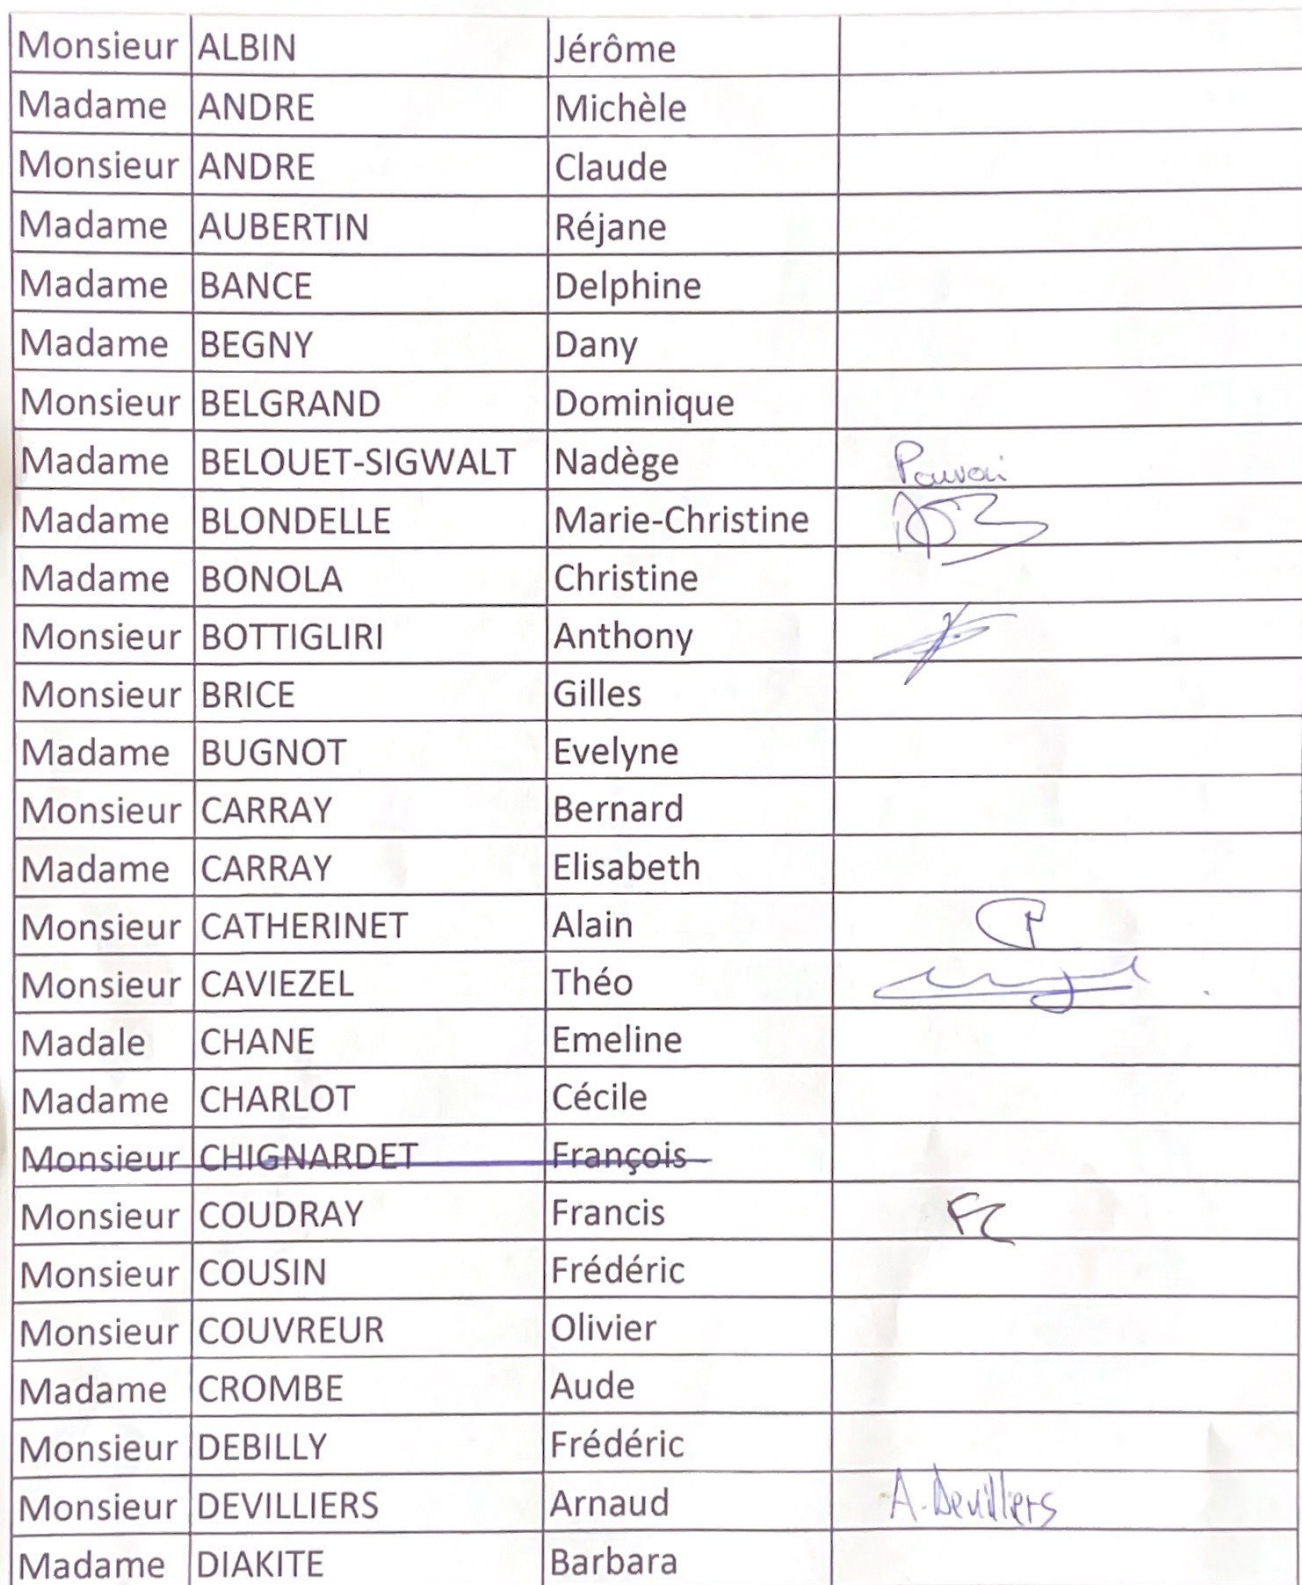 Monsieur ALBIN Jérôme
Madame ANDRE Michèle
Monsieur ANDRE Claude
Madame AUBERTIN Réjane
Madame BANCE Delphine
Madame BEGNY Dany
Monsieur BELGRAND Dominique
Madame BELOUET-SIGWALT Nadège Pouvoir
Madame BLONDELLE Marie-Christine
Madame BONOLA Christine
Monsieur BOTTIGLIRI Anthony
Monsieur BRICE Gilles
Madame BUGNOT Evelyne
Monsieur CARRAY Bernard
Madame CARRAY Elisabeth
Monsieur CATHERINET Alain
Monsieur CAVIEZEL Théo
Madale CHANE Emeline
Madame CHARLOT Cécile
Monsieur CHIGNARDET François
Monsieur COUDRAY Francis FC
Monsieur COUSIN Frédéric
Monsieur COUVREUR Olivier
Madame CROMBE Aude
Monsieur DEBILLY Frédéric
Monsieur DEVILLIERS Arnaud A. Devilliers
Madame DIAKITE Barbara